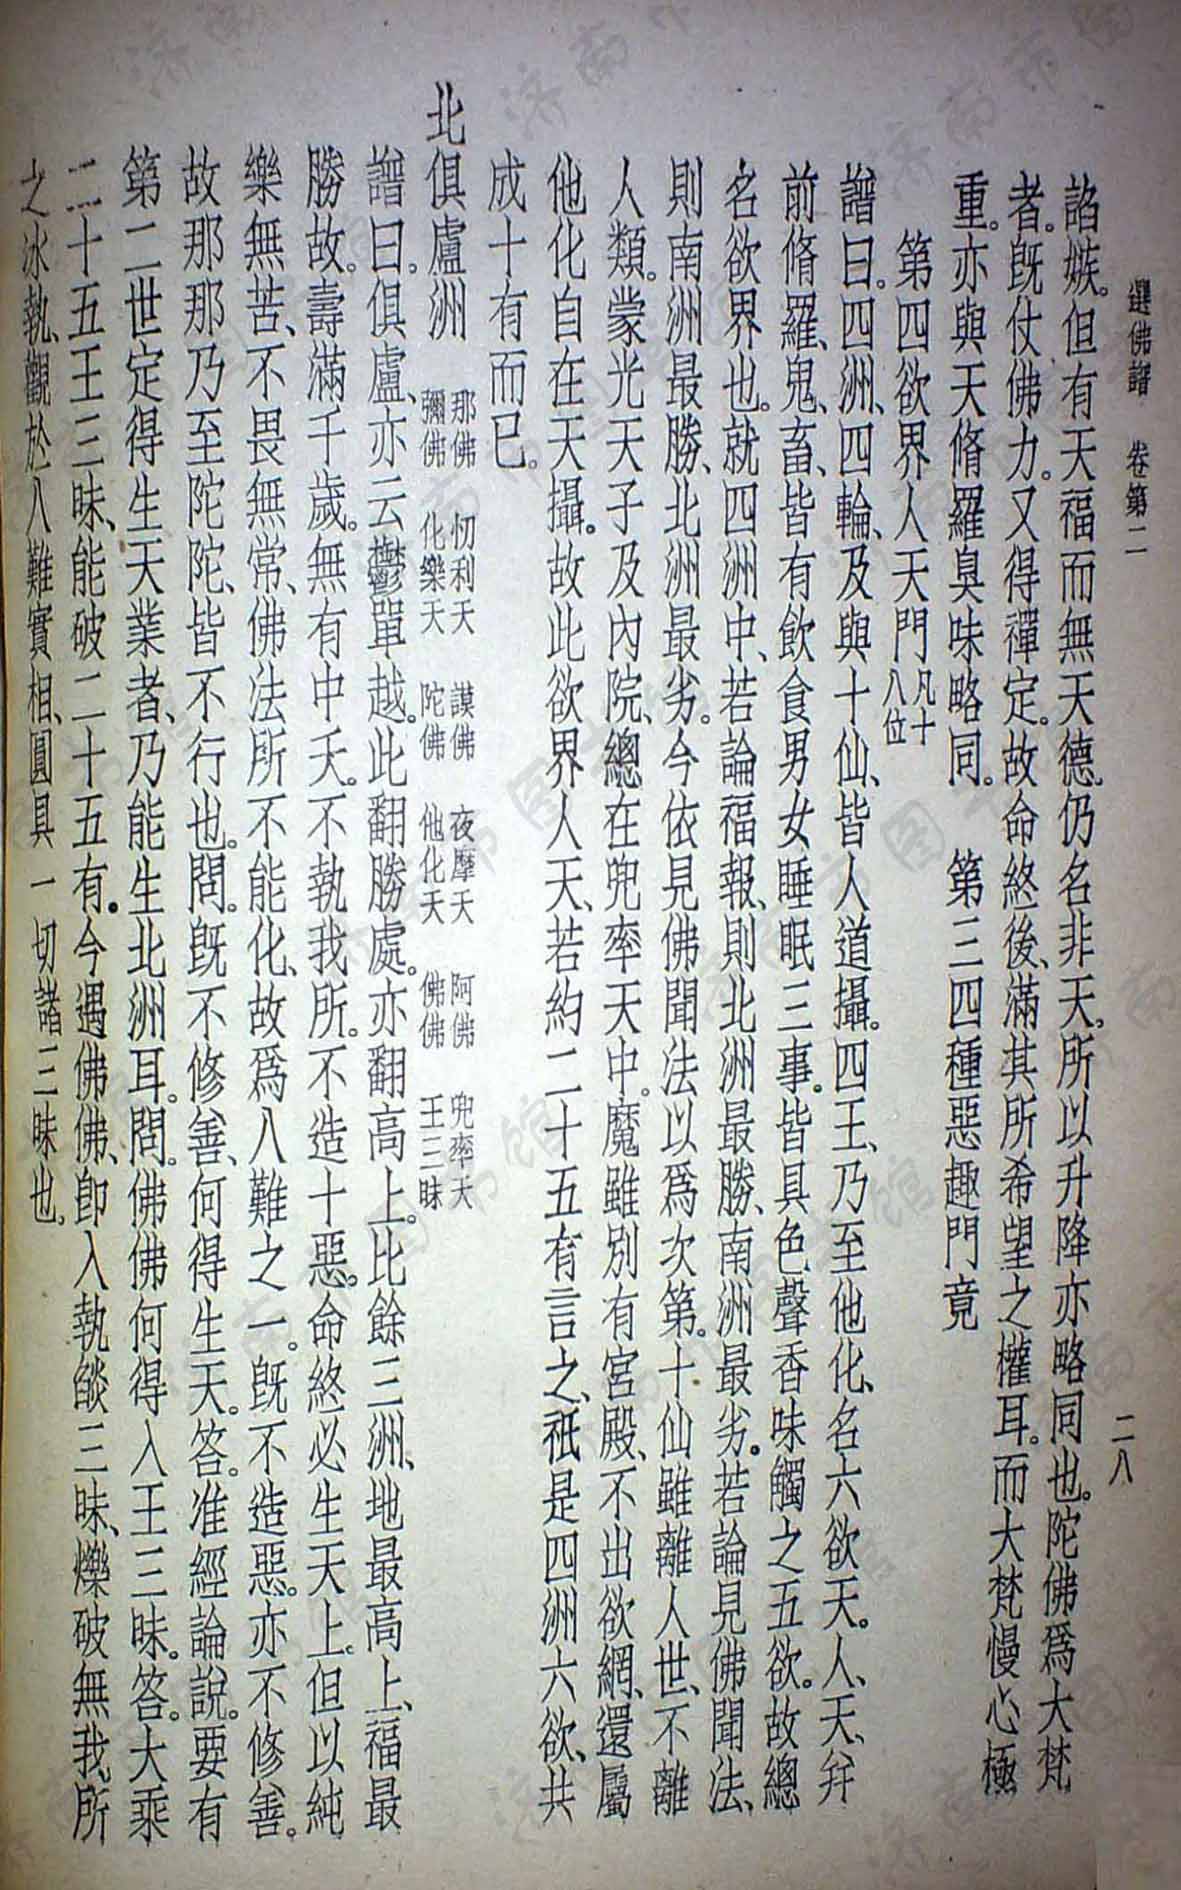 選佛譜 卷第二 二八
諂嫉。但有天福而無天德。仍名非天。所以升降亦略同也。陀佛爲大梵
者。旣仗佛力。又得禪定。故命終後、滿其所希望之權耳。而大梵慢心極
重。亦與天脩羅臭味略同。 第三四種惡趣門竟
第四欲界人天門凡十八位
譜曰。四洲、四輪、及與十仙、皆人道攝。四王、乃至他化、名六欲天。人、天、幷
前脩羅、鬼、畜、皆有飲食男女睡眠三事。皆具色聲香味觸之五欲。故總
名欲界也。就四洲中、若論福報、則北洲最勝、南洲最劣。若論見佛聞法、
則南洲最勝、北洲最劣。今依見佛聞法以爲次第。十仙雖離人世、不離
人類。蒙光天子及內院、總在兜率天中。魔雖別有宮殿、不出欲網、還屬
他化自在天攝。故此欲界人天、若約二十五有言之、祇是四洲六欲、共
成十有而已。
北俱盧洲 那佛 忉利天 謨佛 夜摩天 阿佛 兜率天
彌佛 化樂天 陀佛 他化天 佛佛 王三昧
譜曰。俱盧、亦云鬱單越。此翻勝處。亦翻高上。比餘三洲、地最高上、福最
勝故。壽滿千歲。無有中夭。不執我所。不造十惡。命終必生天上。但以純
樂無苦、不畏無常、佛法所不能化、故爲八難之一。旣不造惡。亦不修善。
故那那乃至陀陀、皆不行也。問。旣不修善、何得生天。答。准經論說。要有
第二世定得生天業者、乃能生北洲耳。問。佛佛何得入王三昧。答。大乘
二十五王三昧、能破二十五有。今遇佛佛、卽入執燄三昧、爍破無我、所
之冰執、觀於八難實相、圓具一切諸三昧也。